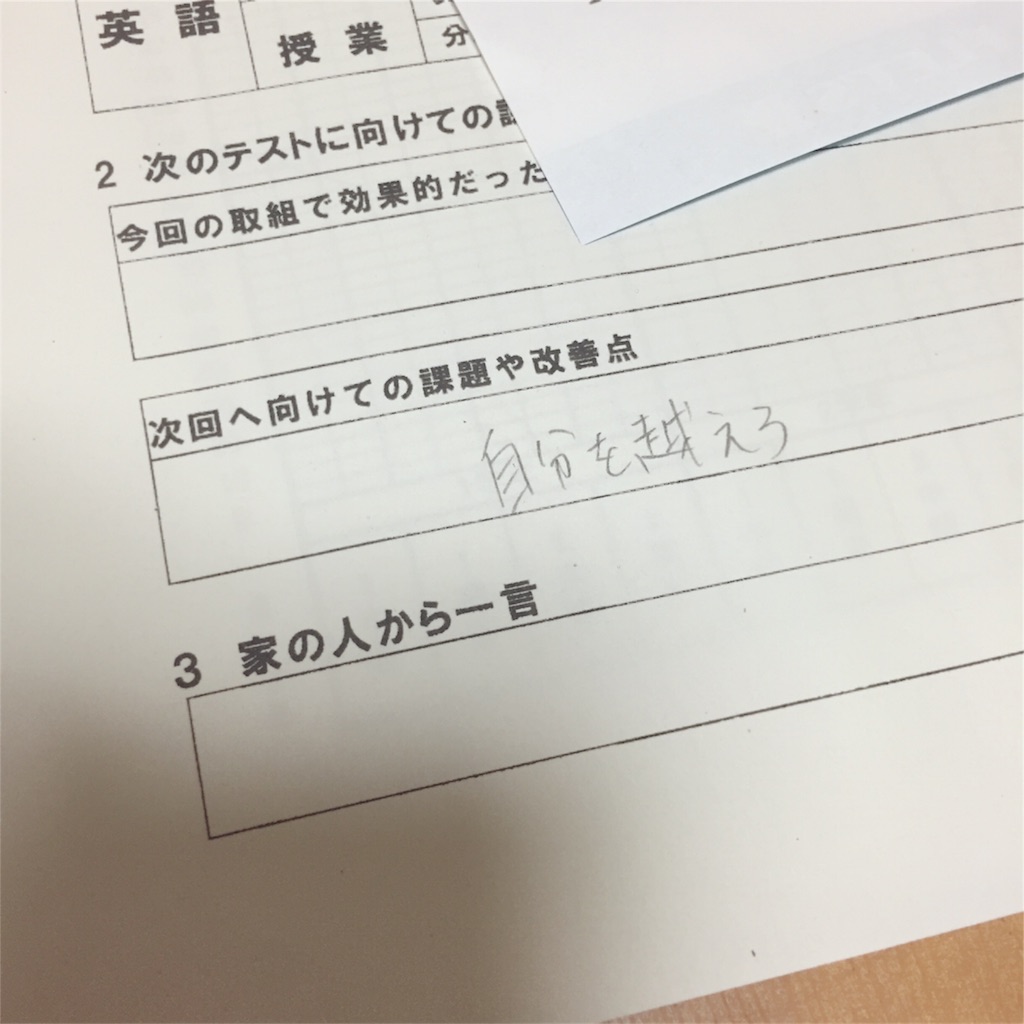 英語
授業
分
2 次のテストに向けての課
今回の取組で効果的だった
次回へ向けての課題や改善点
自分を越えろ
3 家の人から一言